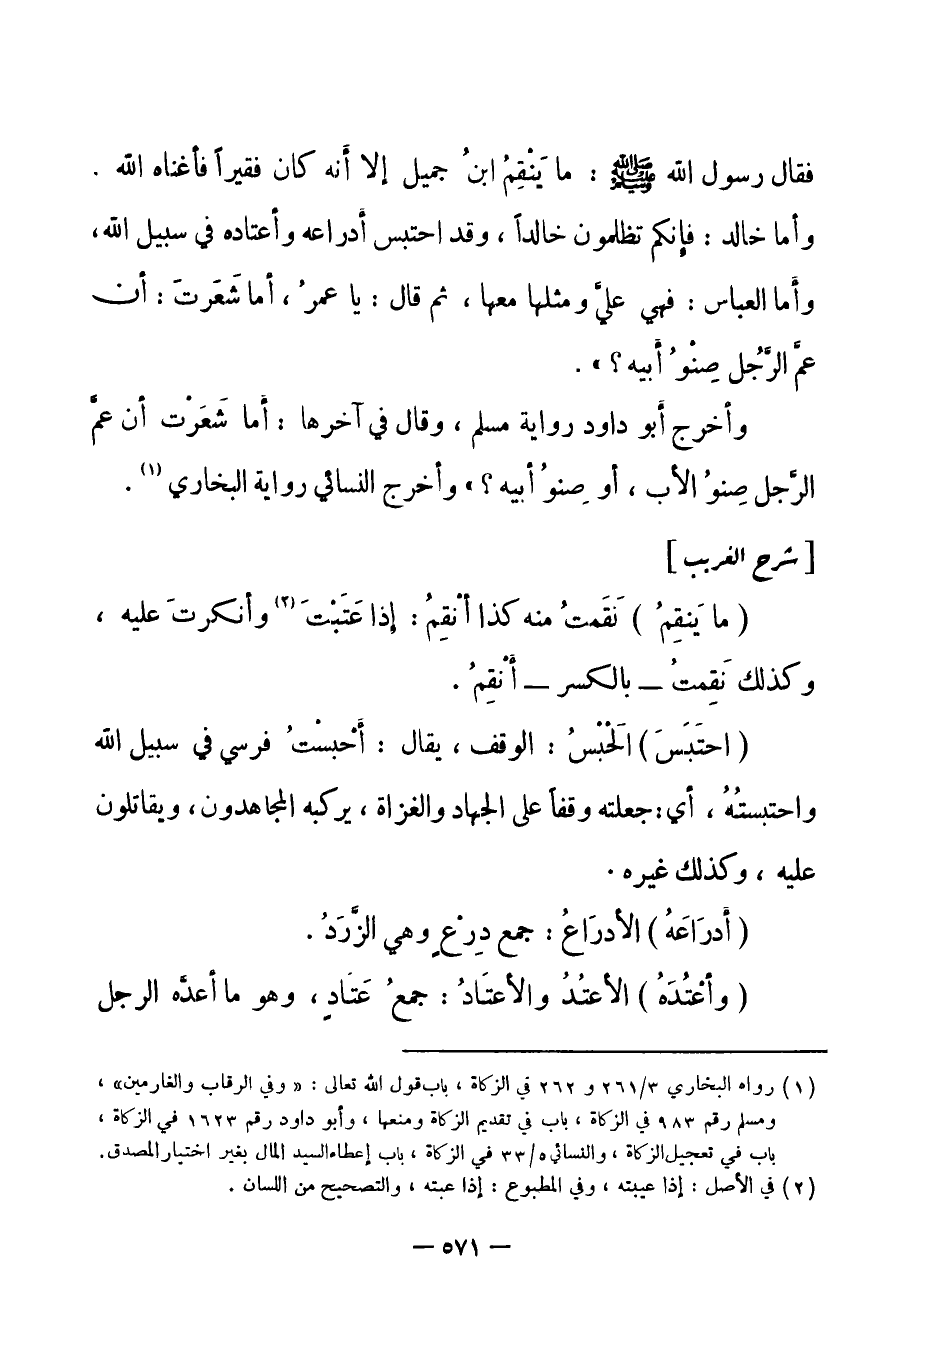 فقال رسول الله ﷺ : ما يَنْقِمُ ابنُ جميل إلا أنه كان فقيراً فأغناه الله .
وأما خالد : فإنكم تظلمون خالداً ، وقد احتبس أدراعه وأعتاده في سبيل الله ،
وأما العباس : فهي عليَّ ومثلها معها ، ثم قال : يا عمرُ ، أما شَعَرتَ : أن
عمَّ الرَّجُل صِنْوُ أبيه ؟ » .
وأخرج أبو داود رواية مسلم ، وقال في آخرها : أما شَعَرْت أن عمَّ
الرَّجل صِنوُ الأب ، أو صِنوُ أبيه ؟ » وأخرج النسائي رواية البخاري (١) .
[ شرح الغريب ]
( ما يَنقِمُ ) نَقَمتُ منه كذا أنْقِمُ : إذا عَتَبْتَ (٢) وأنكرتَ عليه ،
وكذلك نَقِمتُ ــ بالكسر ــ أنْقِمُ .
( احتَبَسَ ) الَحْبْسُ : الوقف ، يقال : أحْبستُ فرسي في سبيل الله
واحتبستُهُ ، أي : جعلته وقفاً على الجهاد والغزاة ، يركبه المجاهدون ، ويقاتلون
عليه ، وكذلك غيره .
( أدرَاعَهُ ) الأدرَاعُ : جمع دِرْعٍ وهي الزَّرَدُ .
( وأعْتُدَهُ ) الأعتُدُ والأعتَادُ : جمعُ عَتَادٍ ، وهو ما أعدَّه الرجل
(١) رواه البخاري ٢٦١/٣ و ٢٦٢ في الزكاة ، باب قول الله تعالى : « وفي الرقاب والغارمين » ،
ومسلم رقم ٩٨٣ في الزكاة ، باب في تقديم الزكاة ومنعها ، وأبو داود رقم ١٦٢٣ في الزكاة ،
باب في تعجيل الزكاة ، والنسائي ٣٣/٥ في الزكاة ، باب إعطاء السيد المال بغير اختيار المصدق.
(٢) في الأصل : إذا عيبته ، وفي المطبوع : إذا عبته ، والتصحيح من اللسان .
— ٥٧١ —